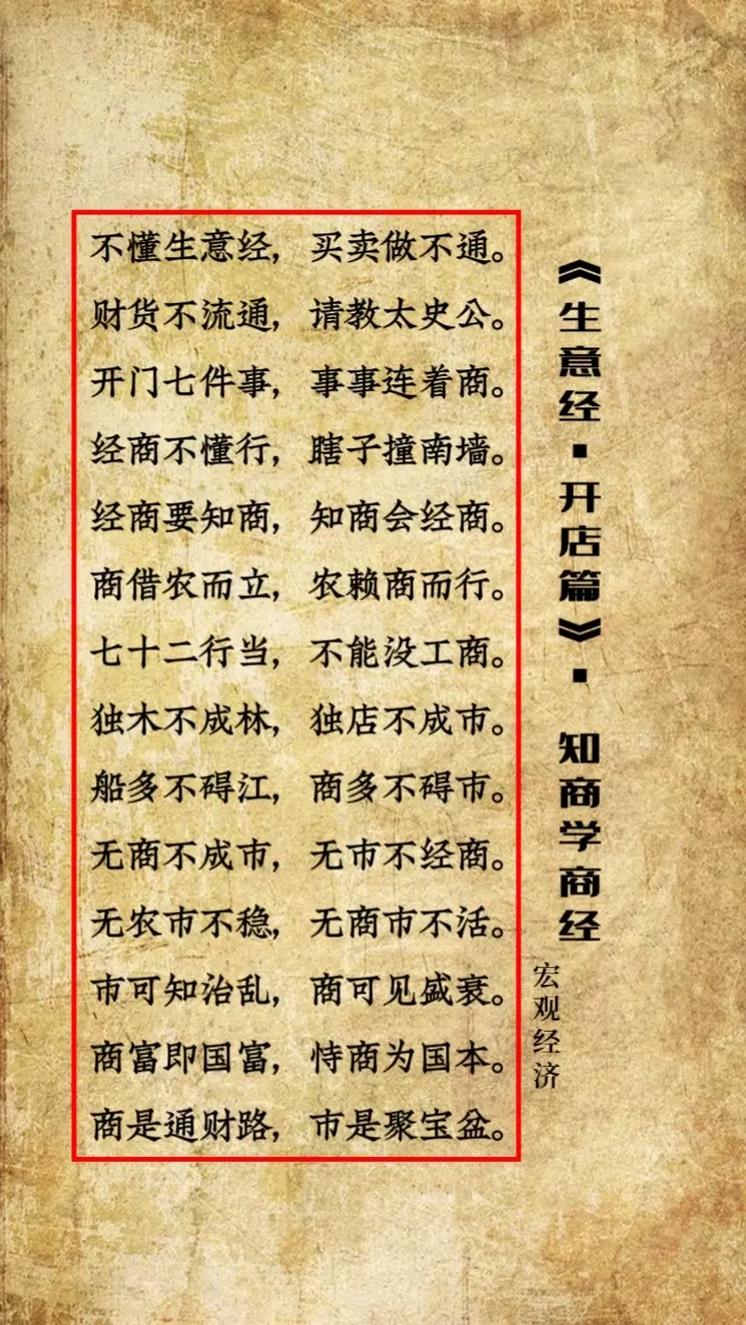 《生意经·开店篇》· 知商学商经
宏观经济
不懂生意经，买卖做不通。
财货不流通，请教太史公。
开门七件事，事事连着商。
经商不懂行，瞎子撞南墙。
经商要知商，知商会经商。
商借农而立，农赖商而行。
七十二行当，不能没工商。
独木不成林，独店不成市。
船多不碍江，商多不碍市。
无商不成市，无市不经商。
无农市不稳，无商市不活。
市可知治乱，商可见盛衰。
商富即国富，恃商为国本。
商是通财路，市是聚宝盆。